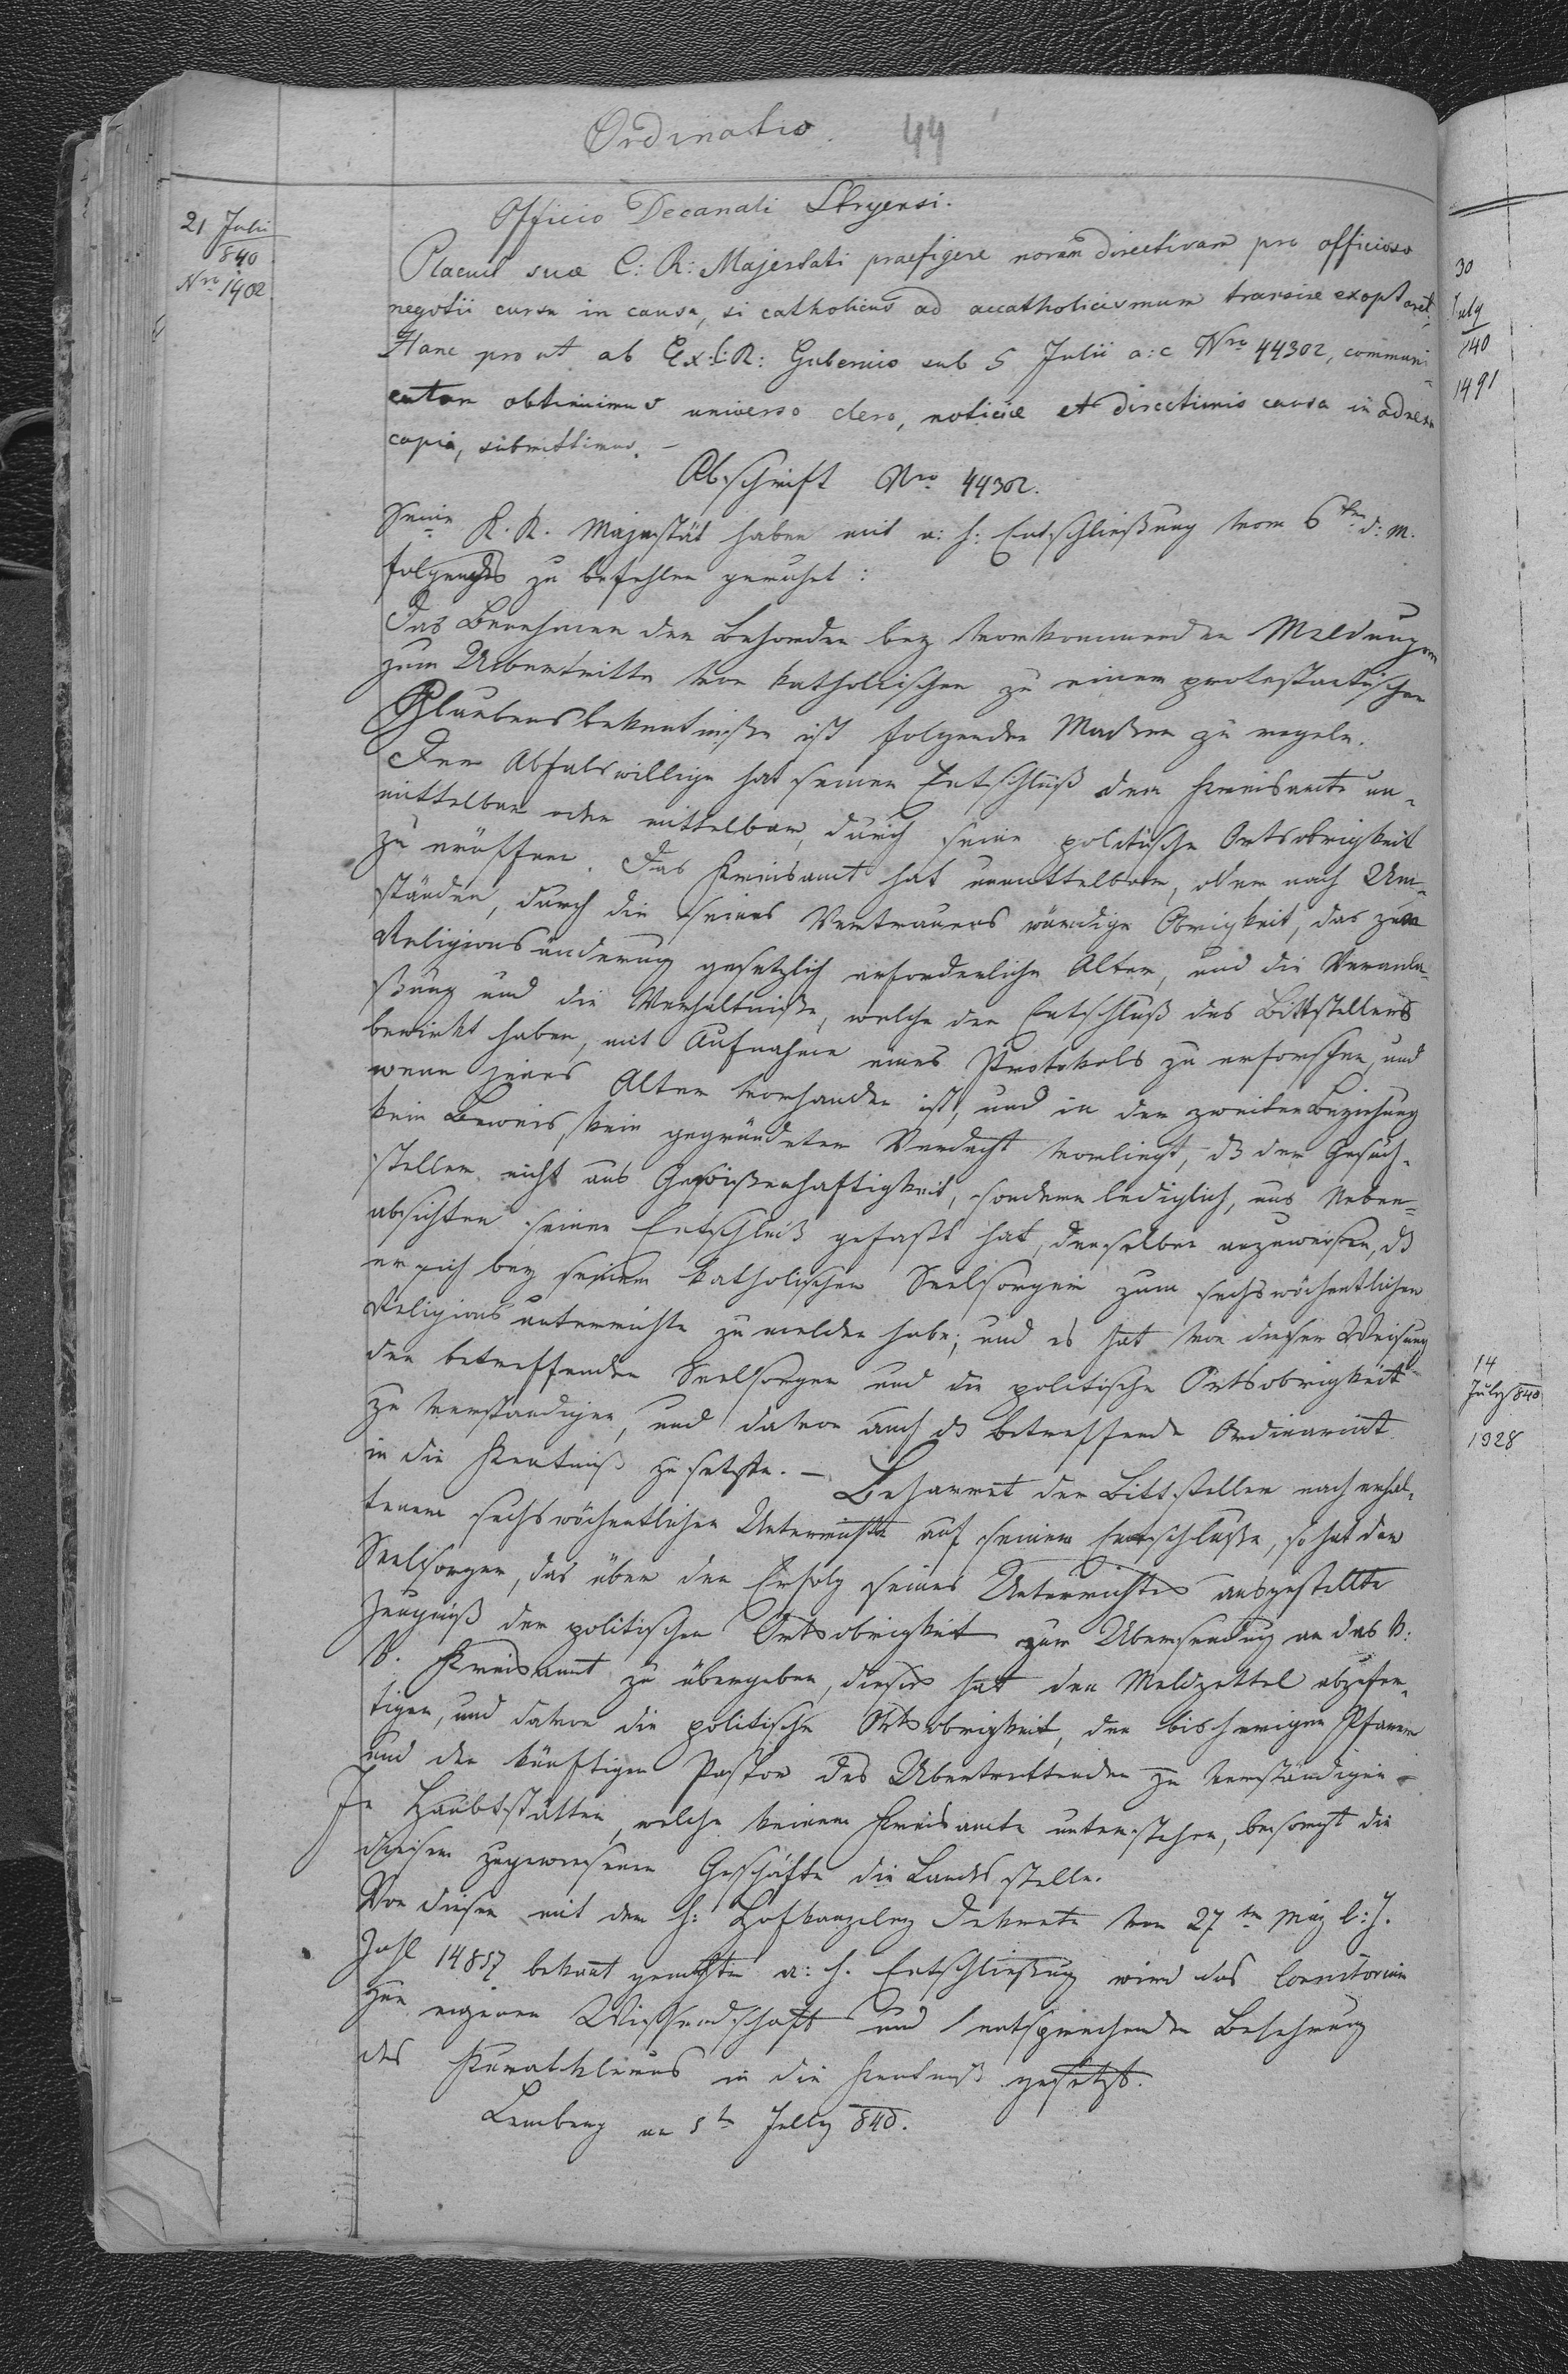 Ordinatio. 44
21 Julii
840
Nro 1402.
Officio Decanali Stryensi.
Placuit suae C: R: Majestati praefigere normam directivam pro officioso
negotii cursu in causa, si catholicus ad acatholicismum transire exoptaret;
Hanc pro ut ab Ex: C: R: Gubernio sub 5 Julii a: c Nro 44302, communi-
catam obtinuimus universo clero, noticiae et directionis causa in adnexa
copia, submittimus. –
Abschrift Nro 44302.
Seine K. K. Majestät haben mit a: h: Entschließung vom 6ten d: M.
folgendes zu befehlen geruhet:
Das Benehmen der Behorden bey vorkommenden Meldungen
zum Uibertritte von katholischen zu einem protestantischen
Glaubensbekentniße ist folgender Maßen zu regeln.
Der Abfalswillige hat seinen Entschluß dem Kreisamte un-
mittelbar oder mittelbar, durch seine politische Ortsobrigkeit
zu eröffnen. Das Kreisamt hat unmittelbar, oder nach Um-
ständen, durch die seines Vertrauens würdige Obrigkeit, das zur
Religionsänderung gesetzlich erforderliche Alter, und die Veranla-
ßung und die Verhältniße, welche den Entschluß des Bittstellers
bewirkt haben, mit Aufnahme eines Protokols zu erforschen, und
wenn jenes Alter vorhanden ist, und in der zweiten Beziehung
kein Beweis, kein gegründeter Verdacht vorliegt, dß der Gesuch-
steller nicht aus Gewißenhaftigkeit, sondern lediglich, aus Neben-
absichten seinen Entschluß gefaßt hat, denselben anzuweisen, dß
er sich bey seinem katholischen Seelsorger zum sechswöchentlichen
Religionsunterrichte zu melden habe; und es hat von dieser Weisung
den betreffenden Seelsorger und die politische Ortsobrigkeit
zu verständigen, und davon auch dß betreffende Ordinariat
in die Kentniß zu setzen. – Beharret der Bittsteller nach erhal-
tenem sechswöchentlichen Unterrichte auf seinem Entschluße, so hat der
Seelsorger, das über den Erfolg seines Unterrichtes ausgestellte
Zeugniß der politischen Ortsobrigkeit zur Ubersendung an das K:
K. Kreisamt zu übergeben, dieses hat den Meldzettel abzufer-
tigen, und davon die politische Ortsobrigkeit, den bisherigen Pfarrer
und den künftigen Pastor des Ubertrettenden zu verständigen –
In Haubtstätten, welche keinem Kreisamte unterstehen, besorgt die
diesem zugewiesenen Geschäfte die Landesstelle.
Von dieser mit dem h: Hofkanzley Dekrete vom 27ten May l: J.
Zahl 14857 bekant gemachten a: h. Entschließung wird das Consistorium
zur eigenen Wissendschaft und entsprechenden Belehrung
des Kuratklerus in die Kentniß gesetzt.
Lemberg am 5ten July 840.
30
July
840
1491
14
July 840
1928